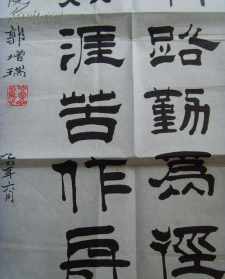 路勤爲徑
涯苦作舟
郭增瑞
年六月